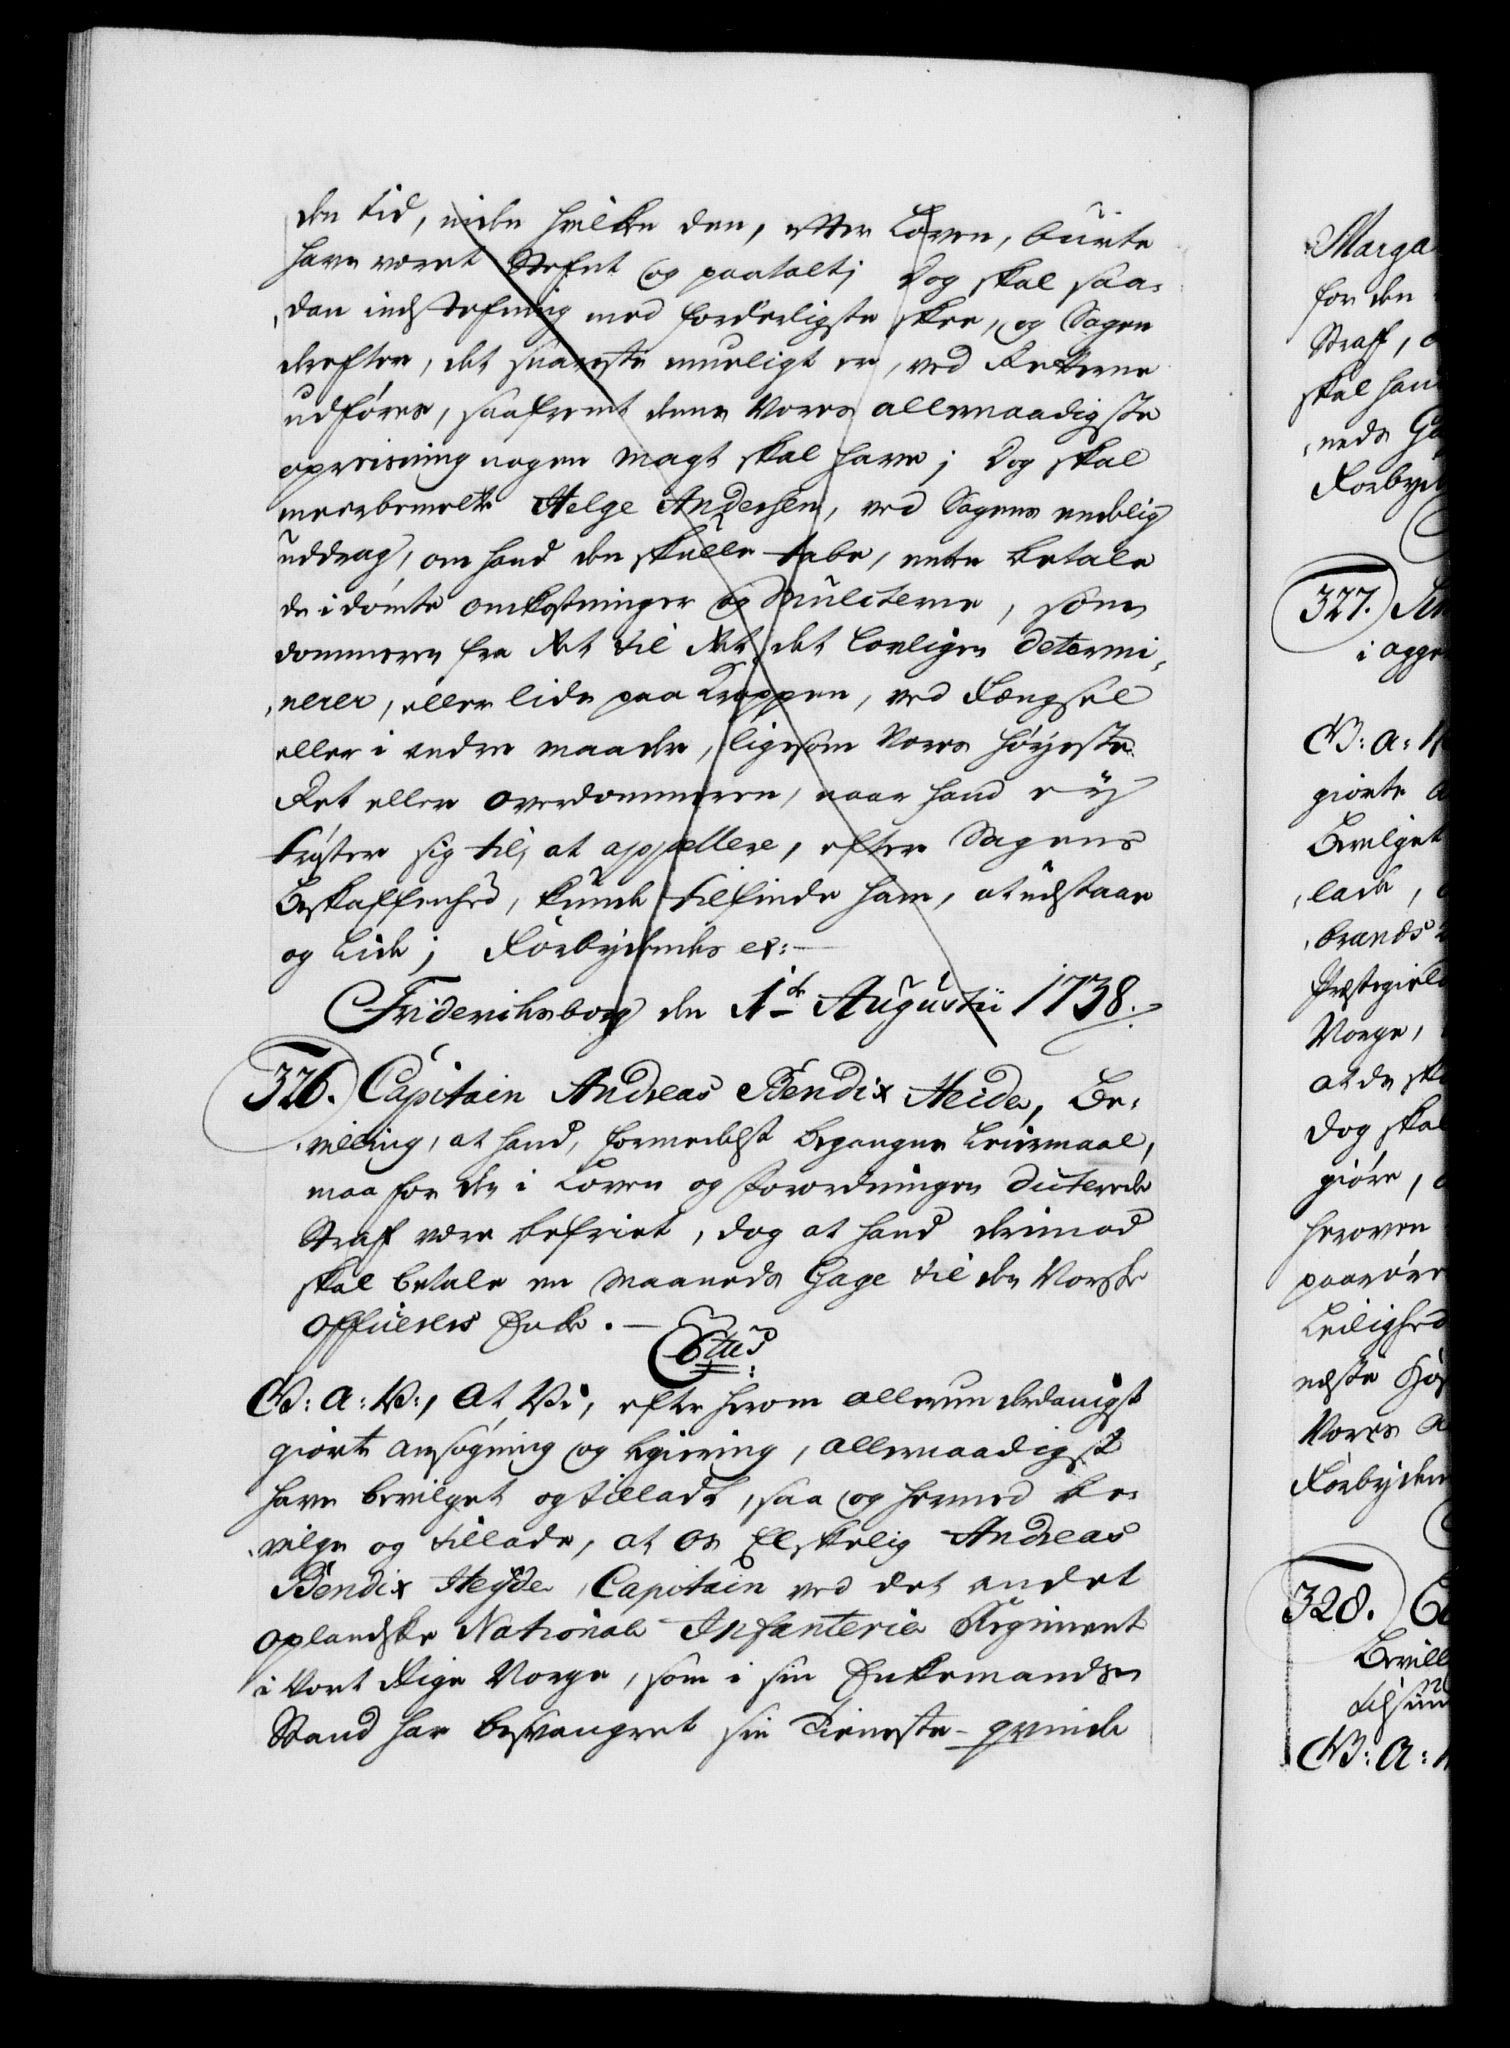 den tid, inden hvilken den, efter Loven, burte
have været Stefnt og paatalt; Dog skal saa-
dan indstefning med forderligste skee, og Sagen
derefter, det snareste mueligt er, ved Retterne
udføres, saafremt denne Vores allernaadigste
opreisning nogen Magt skal have; Dog skal
meerbemelte Helge Andersen, ved Sagens endelig
uddrag, om hand den skulle tabe, enten betale
de idømte omkostninger og Mulcterne, som
dommeren fra Ret til Ret det lovligen determi-
nerer, eller lide paa Kroppen, ved Fængsel
eller i andre maader, ligesom Vores Høyeste-
Ret eller Overdommeren, naar hand ey
trøster sig til, at appellere, efter Sagens
Beskaffenhed, kunde tilfinde ham, at udstaae
og Lide; Forbydendes etc:
Friderichsborg den 1te Augustii 1738.
326. Capitain Andreas Bendix Heide, Be-
villing, at hand, formedelst begangne Leiermaal,
maa for den i Loven og Forordningen dicterede
Straff være befriet, dog at hand derimod
skal betale en Maaneds Gage til den Norske
Officerers Enke.
Ctus
G: A: V:, At Vi, efter herom allerunderdanigst
giorte ansøgning og begiering, allernaadigst
have bevilget og tilladt, saa og hermed be-
vilge og tillade, at os Elskelig Andreas
Bendix Heyde, Capitain ved det andet
Oplandske National Infanterie Regiment
i Vort Rige Norge, som i sin Enkemands-
Stand har besvangret sin Tieneste-qvinde
Marga
for den
Straff,
skal han
neds Ga
Forbyd
327.
i agge
G: A:
giorte
Bevilget
lade,
brands
Præstegield
Norge,
at de ska
Dog skal
giøre,
herover
paarøre
Leilighed
næste
Vores
Forbyden
328.
Bevill
G: A: